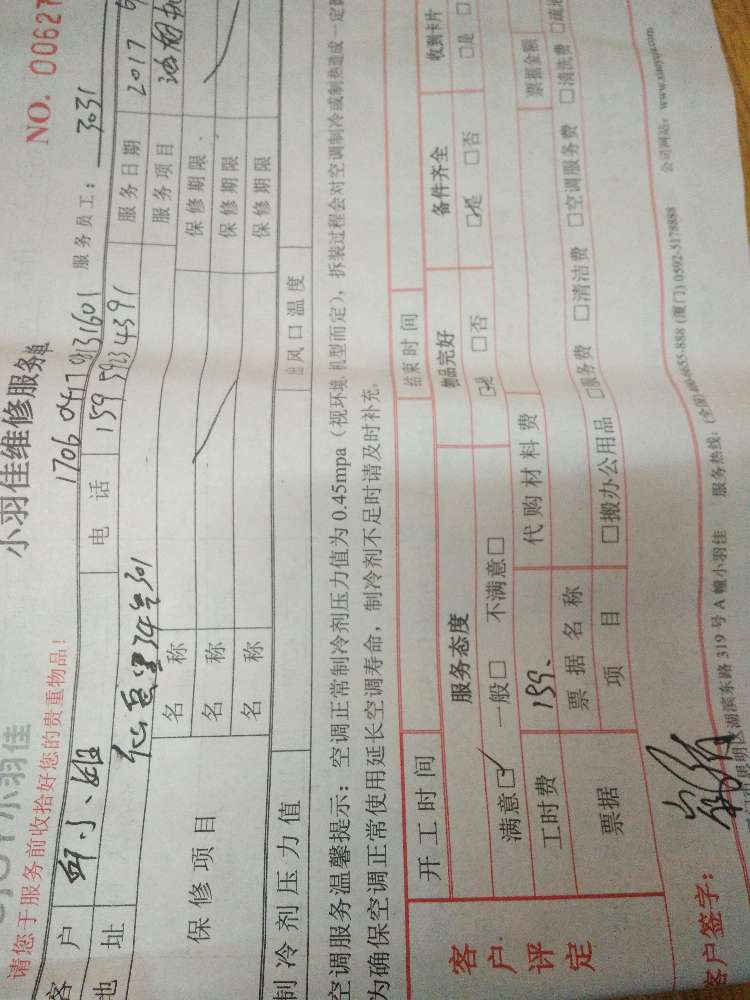 小羽佳
小羽佳维修服务单
NO. 00627
请您于服务前收拾好您的贵重物品!
17060417 服务员工: 3031
客户 小姐 电话 159 5923 4391 服务日期 2017
地址 服务项目
保修项目 名称 保修期限
名称 保修期限
名称 保修期限
制冷剂压力值 出风口温度
空调服务温馨提示: 空调正常制冷剂压力值为 0.45mpa (视环境、机型而定), 拆装过程会对空调制冷或制热造成一定
为确保空调正常使用延长空调寿命, 制冷剂不足时请及时补充。
客户评定
开工时间 结束时间
服务态度 物品完好 备件齐全 收到卡片
满意☑ 一般□ 不满意□ ☑是 □否 ☑是 □否 □是
工时费 159. 代购材料费
票据 票据名称 票据金额
项目 □搬办公用品 □服务费 □清洁费 □空调服务费 □清洗费
客户签字:
思明区湖滨东路 319 号 A 幢小羽佳 服务热线: (厦门) 0592-5178888 公司网站: www.xiaoyujia.com